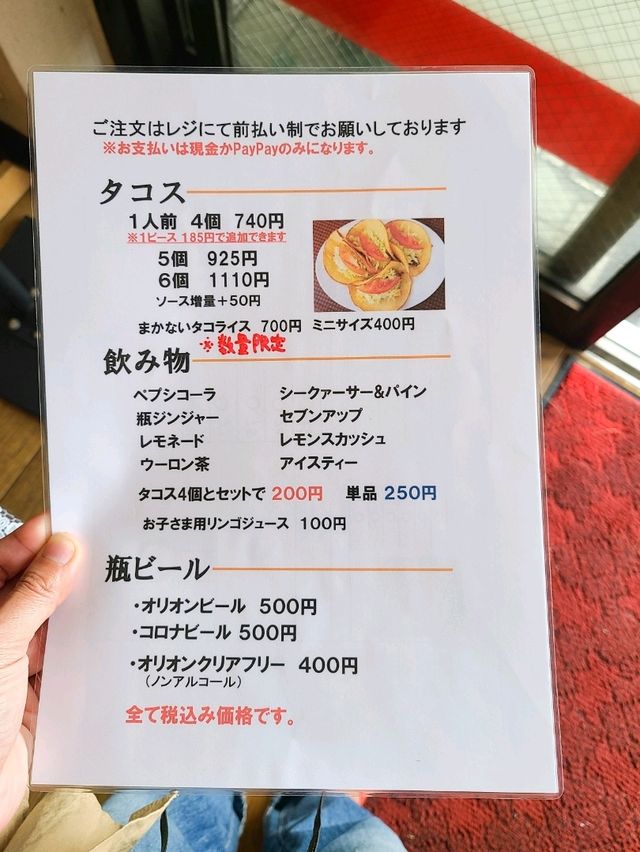 ご注文はレジにて前払い制でお願いしております
※お支払いは現金かPayPayのみになります。
タコス
1人前 4個 740円
※1ピース 185円で追加できます
5個 925円
6個 1110円
ソース増量＋50円
まかないタコライス 700円 ミニサイズ400円
※数量限定
飲み物
ペプシコーラ シークァーサー&パイン
瓶ジンジャー セブンアップ
レモネード レモンスカッシュ
ウーロン茶 アイスティー
タコス4個とセットで 200円 単品 250円
お子さま用リンゴジュース 100円
瓶ビール
・オリオンビール 500円
・コロナビール 500円
・オリオンクリアフリー 400円
（ノンアルコール）
全て税込み価格です。